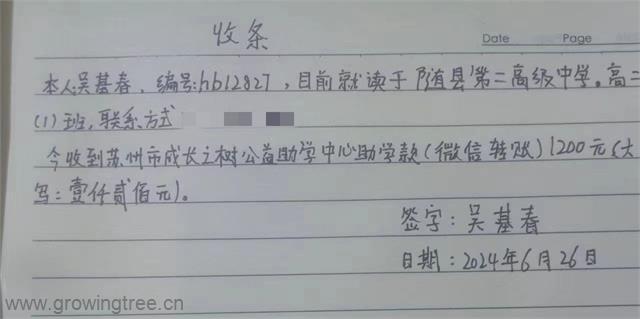 收条
Date Page
本人吴基春，编号:hb12827，目前就读于随县第二高级中学。高二
(1)班，联系方式
今收到苏州市成长之树公益助学中心助学款(微信转账)1200元(大
写：壹仟贰佰元)。
签字：吴基春
日期：2024年6月26日
www.growingtree.cn